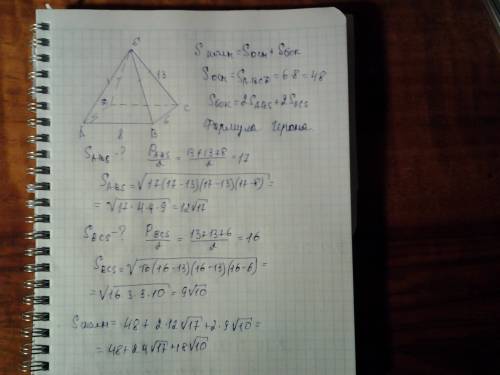 S
13
A
8
B
6
C
Sполн = Sосн + Sбок
Sосн = SABCD = 6·8 = 48
Sбок = 2SABS + 2SBCS
Формула Герона.
SABS - ? PABS/2 = 13+13+8/2 = 17
SABS = √17(17-13)(17-13)(17-8) =
= √17·4·4·9 = 12√17
SBCS - ? PBCS/2 = 13+13+6/2 = 16
SBCS = √16(16-13)(16-13)(16-6) =
= √16·3·3·10 = 9√10
Sполн = 48 + 2·12√17 + 2·9√10 =
= 48 + 24√17 + 18√10